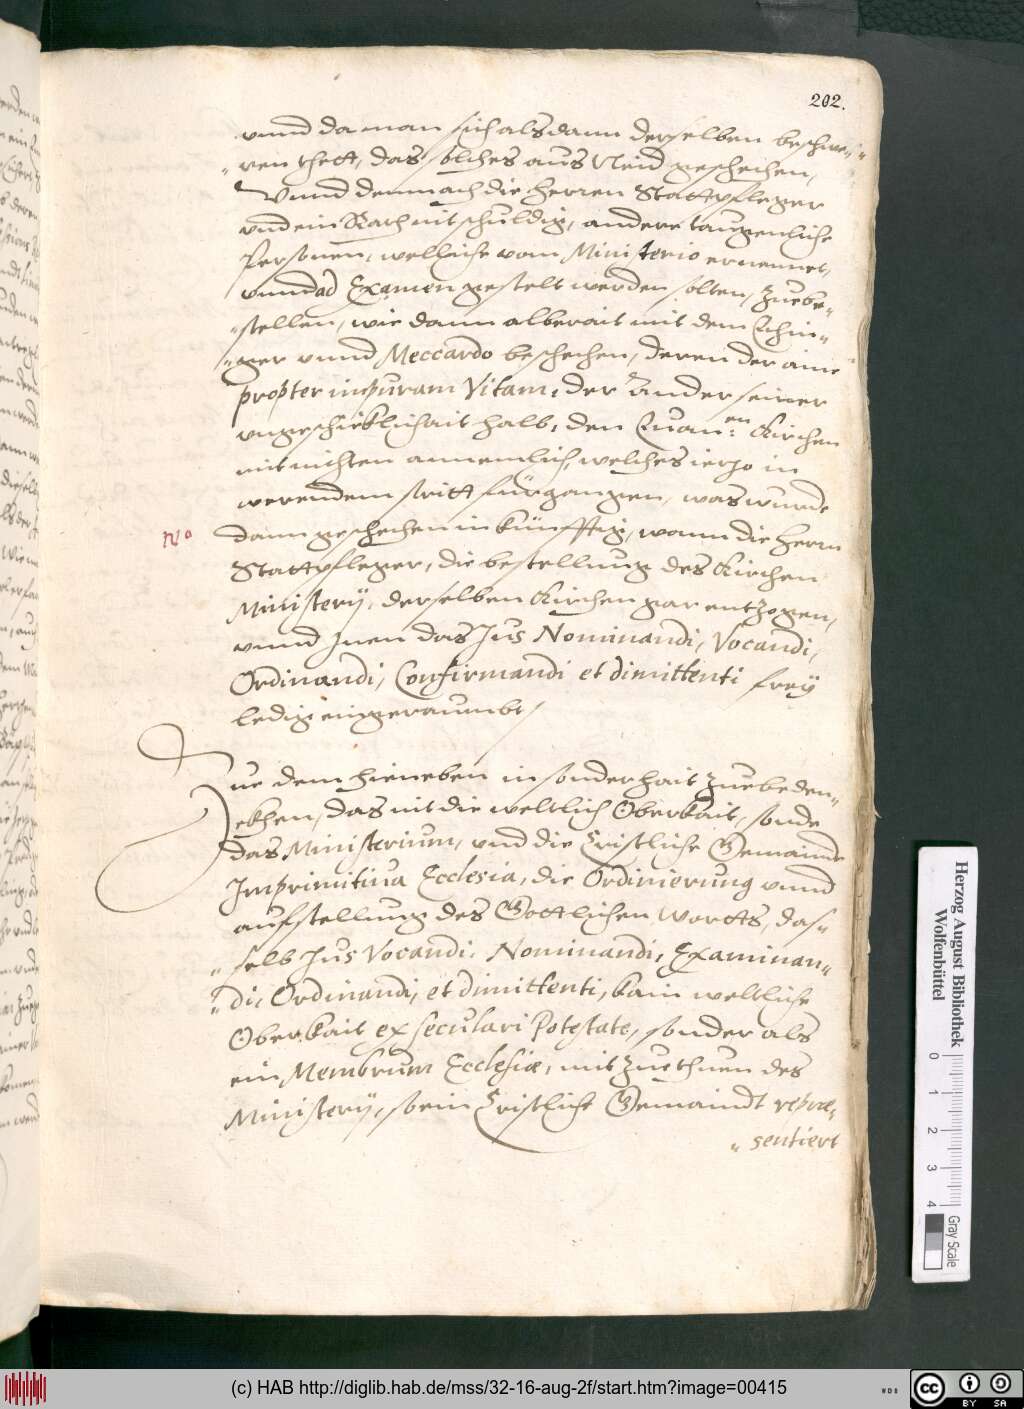 202.
vnnd da man sich alsdann derselben beschwe„
„ren thett, das solches aus Neid geschechen,
Vnnd demnach die Herren Stattpfleger
vnd ein Rath nit schuldig, andere taugenliche
Personen, welliche vom Ministerio ernennet,
vnnd ad Examen gestelt werden solten, Zuebe„
„stellen, wie dann alberait mit dem
„ger vnnd Meccardo beschechen, deren der aine
propter impuram Vitam, der Ander seiner
vngeschicklichait halb, den Euan:en Kirchen
mit nichten annemlich, welches iezo in
werendem stritt fürgangen, was wurde
No
dann geschechen in künfftig, wann die Herrn
Stattpfleger, die bestellung des Kirchen
Ministerÿ, derselben Kirchen gar entzogen,
vnnd Jnen das Jus Nominandi, Vocandi,
Ordinandi, Confirmandi et dimittenti freÿ
ledig eingeraumbt,
Zue dem hieneben in sonderhait Zuebeden„
ckhen, das nit die weltlich Oberkait, sonde
das Ministerium, vnd die Cristliche Gemainde
Jmprimitiua Ecclesia, die Ordinierung vnnd
aufstellung des Göttlichen wortts, das„
„selb Jus Vocandi, Nominandi, Examinan„
„di, Ordinandi, et dimittenti, kain weltliche
Oberkait ex seculari Potestate, sonder als
ein Membrum Ecclesiæ, mit Zuethuen des
Ministerÿ, so ein Cristliche Gemaindt repræ„
„sentiert
Herzog August Bibliothek
Wolfenbüttel
0 1 2 3 4
Gray Scale
(c) HAB http://diglib.hab.de/mss/32-16-aug-2f/start.htm?image=00415
WDB
cc BY SA